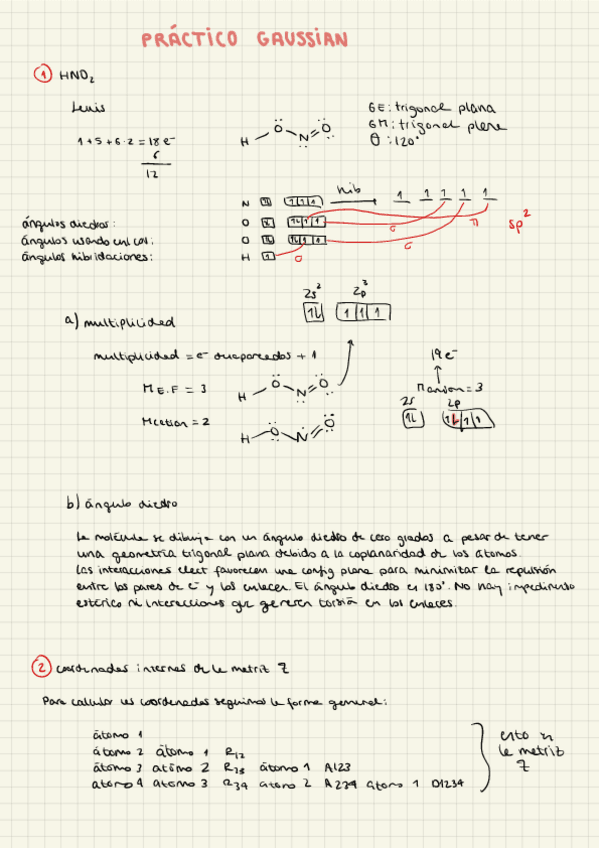 PRÁCTICO GAUSSIAN
1 HNO2
Lewis
1+5+6·2 = 18 e-
6
12
H O N O
GE: trigonal plana
GM: trigonal plana
θ: 120°
N hib
O
O
H
σ σ σ π sp2
ángulos diedros:
ángulos usando
ángulos hibridaciones:
2s2 2p3
a) multiplicidad
multiplicidad = e- desapareados + 1
19 e-
M E.F = 3
H O N O
M anion = 3
2s 2p
M cation = 2
H O N O
b) ángulo diedro
La molécula se dibuja con un ángulo diedro de cero grados a pesar de tener
una geometría trigonal plana debido a la coplanaridad de los átomos.
Las interacciones elect favorecen una config plana para minimizar la repulsión
entre los pares de e- y los enlaces. El ángulo diedro es 180°. No hay impedimento
estérico ni interacciones que generen torsión en los enlaces.
2 coordenadas internas de la matriz Z
Para calcular las coordenadas seguimos la forma general:
átomo 1
átomo 2 átomo 1 R12
átomo 3 átomo 2 R23 átomo 1 A123
átomo 4 átomo 3 R34 átomo 2 A234 átomo 1 D1234
esto es
la matriz
Z